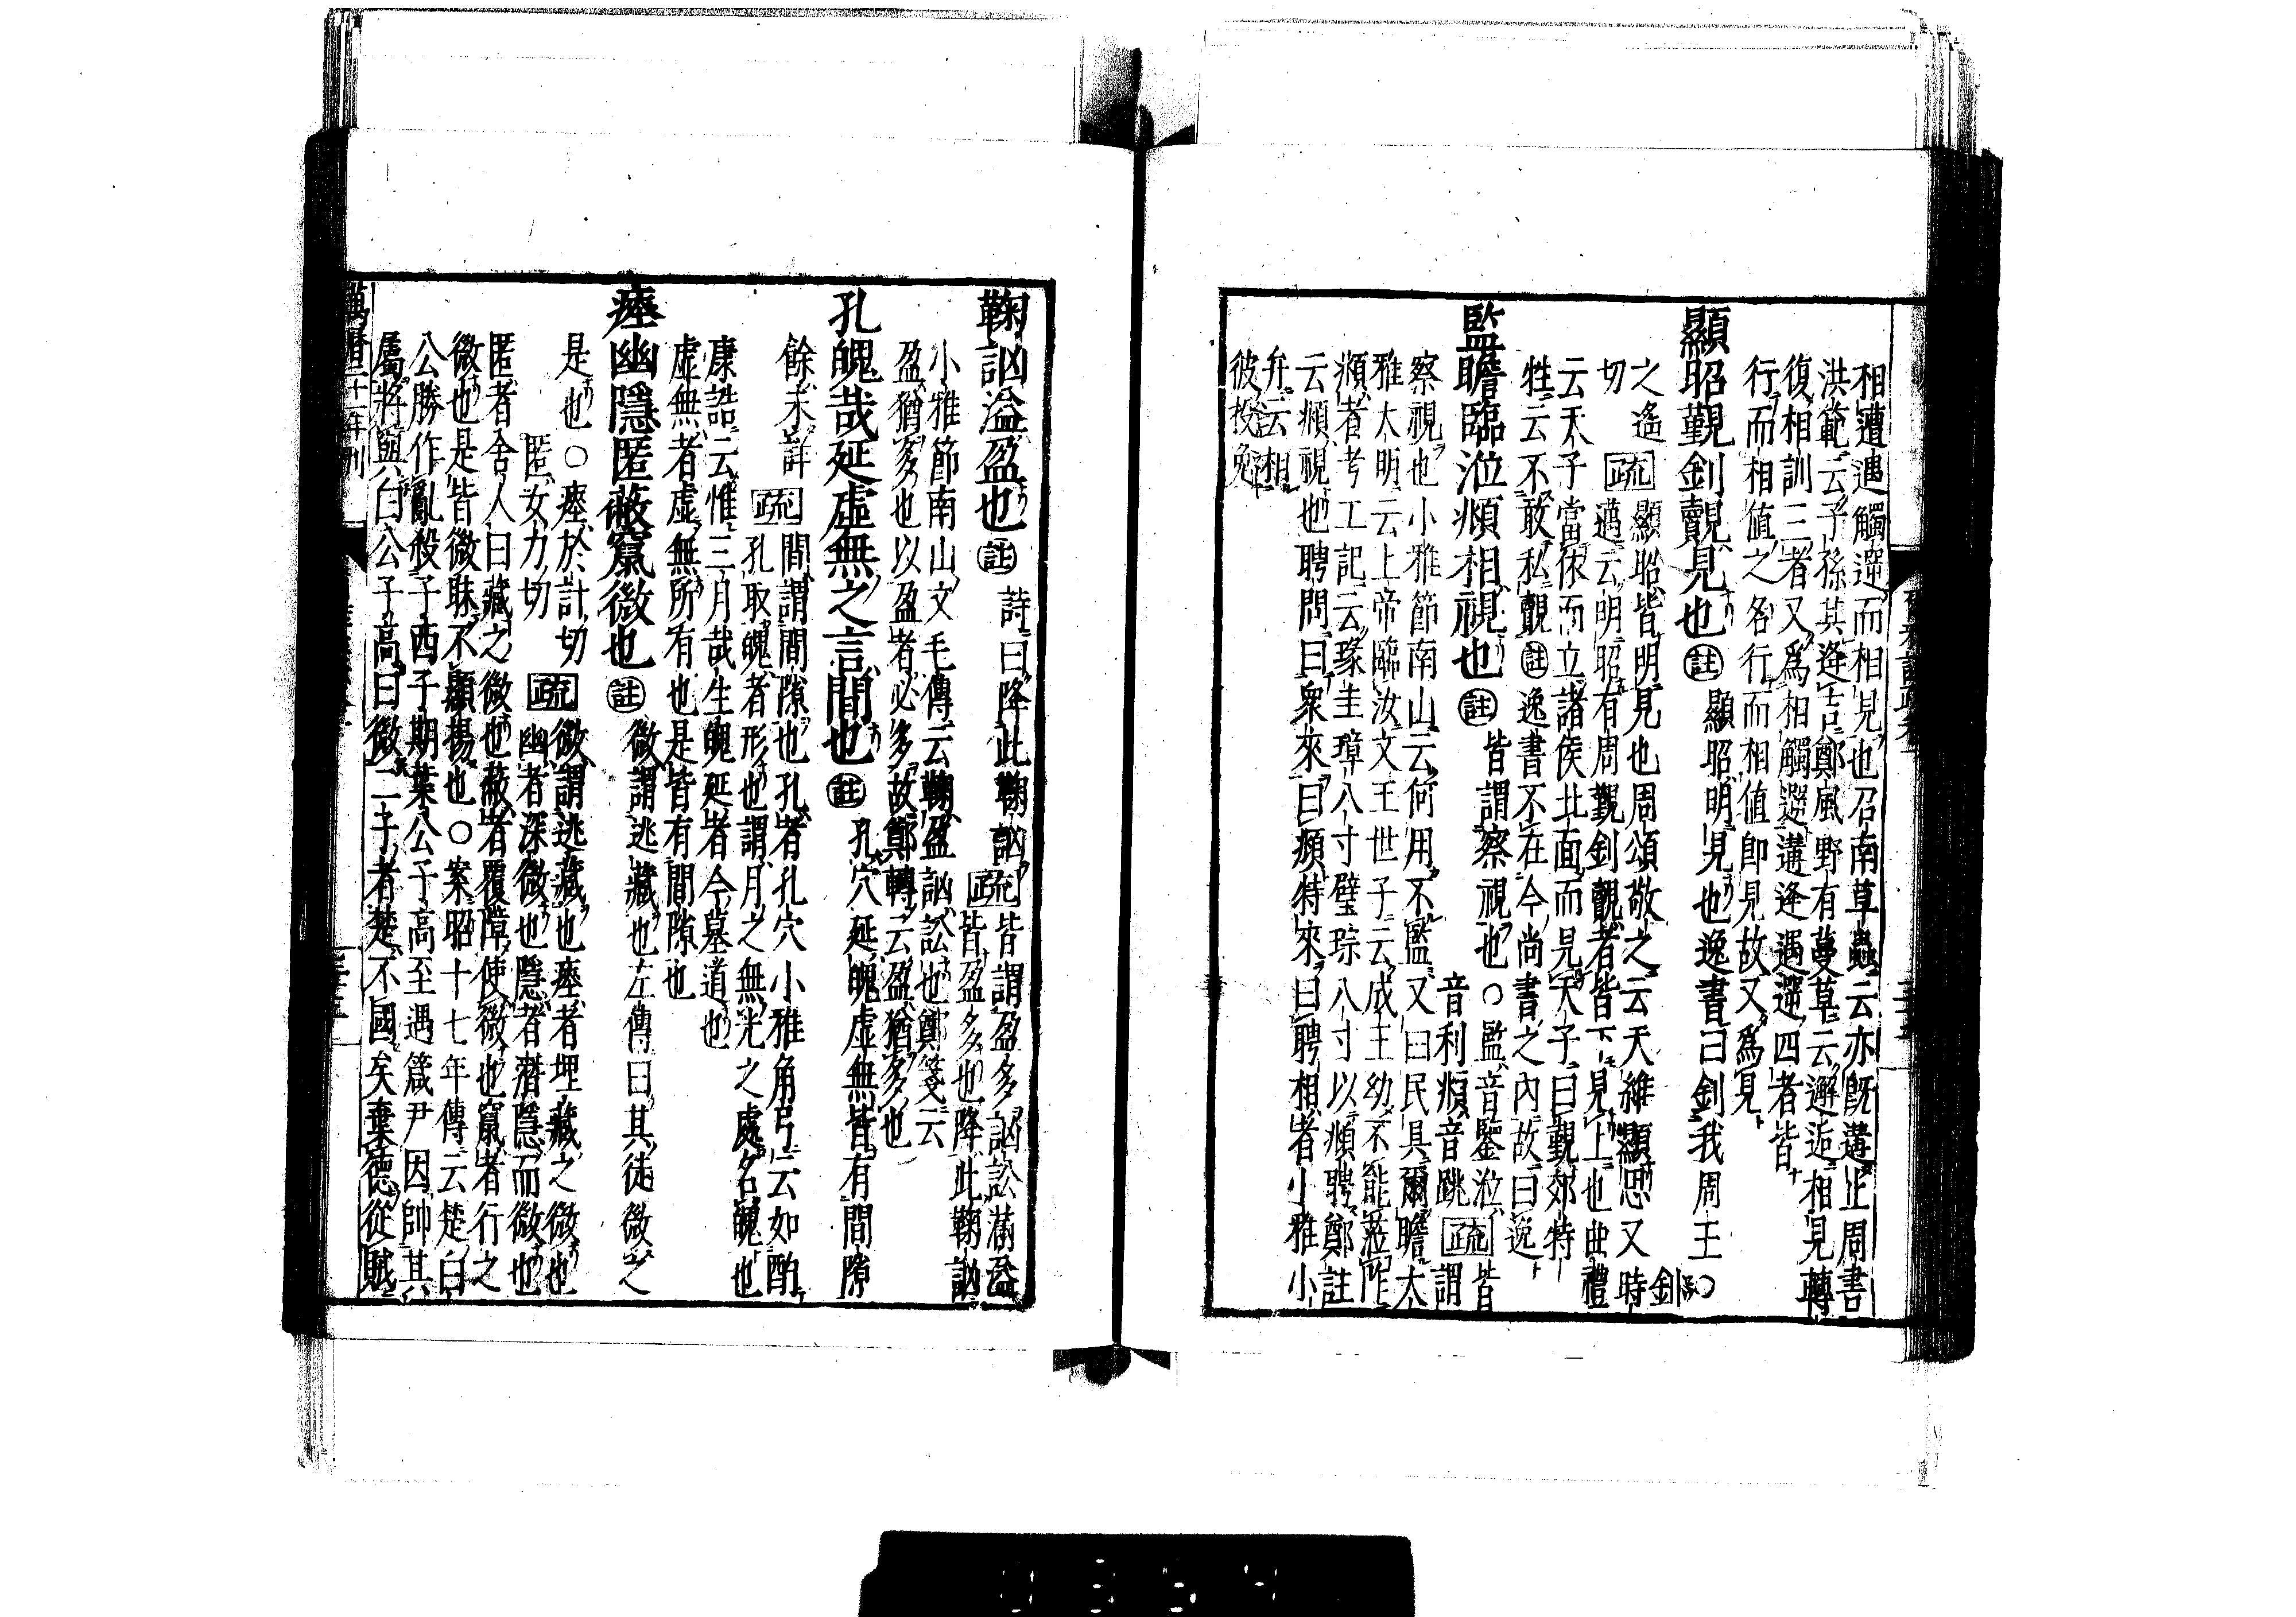 相遭遇觸遻而相見也召南草蟲云亦既遘止周書
洪範云子孫其逢吉鄭風野有蔓草云邂逅相見轉
復相訓三者又爲相觸遻遘逢遇遻四者皆
行而相値之各行而相値即見故又爲見
顯昭覲釗覿見也註顯昭明見也逸書曰釗我周王○釗
之遙切疏顯昭皆明見也周頌敬之云天維顯思又時
邁云明昭有周覲釗覿者皆下見上也曲禮
云天子當依而立諸侯北面而見天子曰覲郊特
牲云不敢私覿註逸書不在今尚書之內故曰逸
監瞻臨涖頫相視也註皆謂察視也○監音鑒涖音利頫音跳疏皆謂
察視也小雅節南山云何用不監又曰民具爾瞻大
雅大明云上帝臨汝文王世子云成王幼不能蒞阼
頫者考工記云瑑圭璋八寸璧琮八寸以頫聘鄭註
云頫視也聘問曰衆來曰頫特來曰聘相者小雅小
弁云相彼投兔
鞠訩溢盈也註詩曰降此鞠訩疏皆謂盈多訩訟滿溢
皆盈多也降此鞠訩
小雅節南山文毛傳云鞠盈訩訟也鄭箋云
盈猶多也以盈者必多故鄭轉云盈猶多也
孔魄哉延虛無之言間也註孔穴延魄虛無皆有間隙
餘未詳疏間謂間隙也孔者孔穴小雅角弓云如酌
孔取魄者形也謂月之無光之處名魄也
康誥云惟三月哉生魄延者今墓道也
虛無者虛無所有也是皆有間隙也
瘞幽隱匿蔽竄微也註微謂逃藏也左傳曰其徒微之
是也○瘞於計切匿女力切疏微謂逃藏也瘞者埋藏之微也
幽者深微也隱者潛隱而微也
匿者舍人曰藏之微也蔽者覆障使微也竄者行之
微也是皆微昧不顯揚也○案昭十七年傳云楚白
公勝作亂殺子西子期葉公子高至遇箴尹因帥其
屬將與白公子高曰微二子者楚不國矣棄德從賊
萬曆二十一年刊